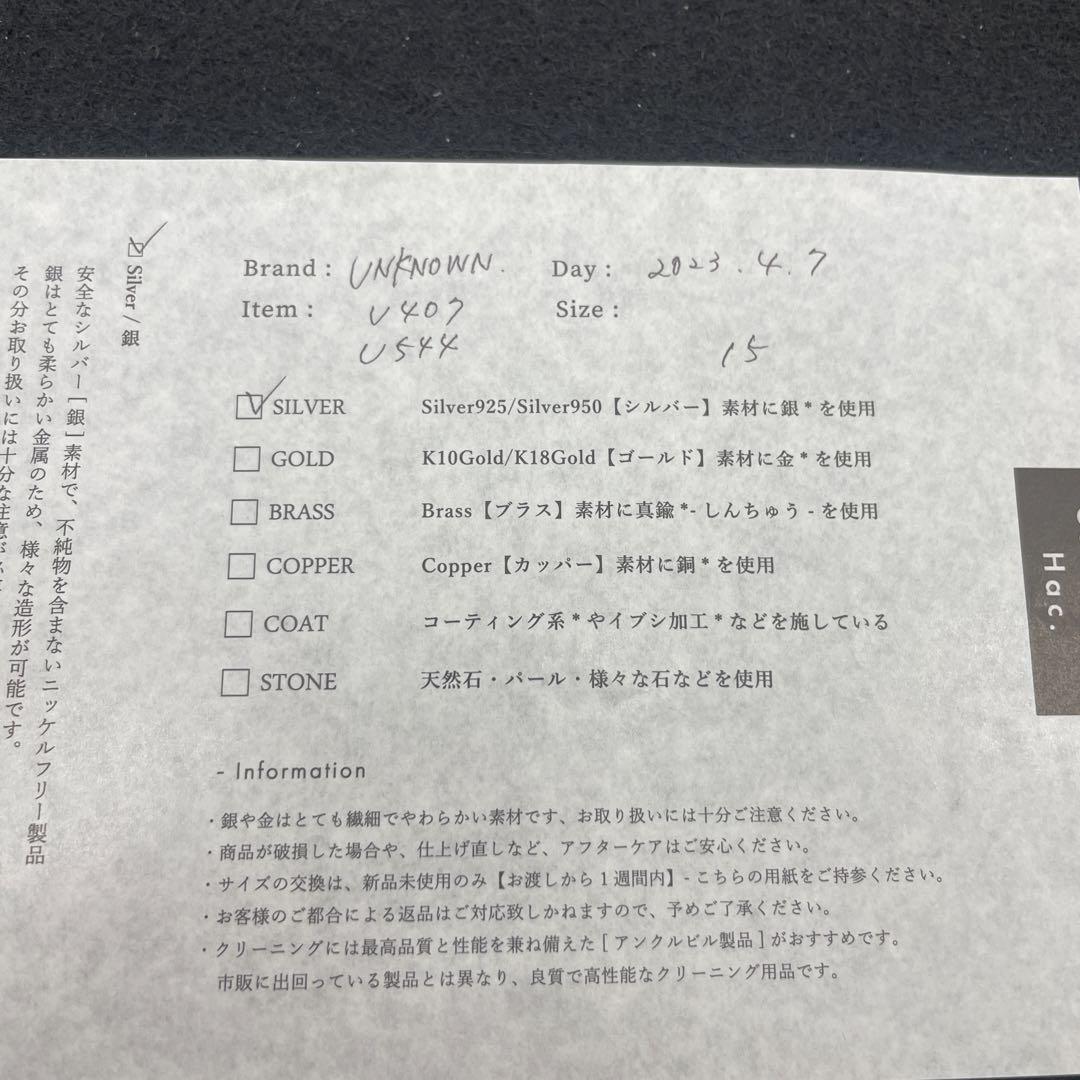 Brand : UNKNOWN. Day : 2023.4.7
Item : U407 Size :
U544 15
☑ SILVER Silver925/Silver950【シルバー】素材に銀 * を使用
☐ GOLD K10Gold/K18Gold【ゴールド】素材に金 * を使用
☐ BRASS Brass【ブラス】素材に真鍮 *- しんちゅう - を使用
☐ COPPER Copper【カッパー】素材に銅 * を使用
☐ COAT コーティング系 * やイブシ加工 * などを施している
☐ STONE 天然石・パール・様々な石などを使用
- Information
・銀や金はとても繊細でやわらかい素材です、お取り扱いには十分ご注意ください。
・商品が破損した場合や、仕上げ直しなど、アフターケアはご安心ください。
・サイズの交換は、新品未使用のみ【お渡しから1週間内】- こちらの用紙をご持参ください。
・お客様のご都合による返品はご対応致しかねますので、予めご了承ください。
・クリーニングには最高品質と性能を兼ね備えた [ アンクルビル製品 ] がおすすめです。
市販に出回っている製品とは異なり、良質で高性能なクリーニング用品です。
☑ Silver / 銀
安全なシルバー [ 銀 ] 素材で、不純物を含まないニッケルフリー製品
銀はとても柔らかい金属のため、様々な造形が可能です。
その分お取り扱いには十分な注意が
Hac.